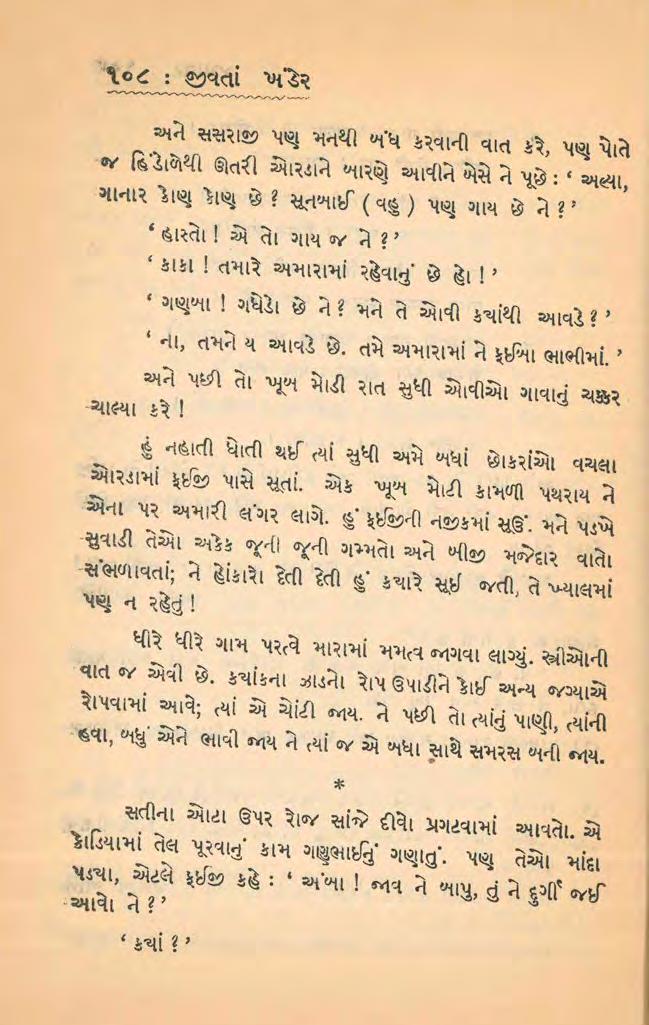 ૧૦૮ : જીવતાં ખંડેર
અને સસરાજી પણ મનથી બંધ કરવાની વાત કરે, પણ પોતે
જ હિંડોળેથી ઊતરી ઓરડાને બારણે આવીને બેસે ને પૂછે : ‘ અલ્યા,
ગાનાર કોણ કોણ છે ? સૂનબાઈ ( વહુ ) પણ ગાય છે ને ? ’
‘ હાસ્તો ! એ તો ગાય જ ને ? ’
‘ કાકા ! તમારે અમારામાં રહેવાનું છે હો ! ’
‘ ગણબા ! ગધેડો છે ને ? મને તે ઓવી ક્યાંથી આવડે ? ’
‘ ના, તમને ય આવડે છે. તમે અમારામાં ને ફઈબા ભાભીમાં. ’
અને પછી તો ખૂબ મોડી રાત સુધી ઓવીઓ ગાવાનું ચક્કર
ચાલ્યા કરે !
હું નહાતી ધોતી થઈ ત્યાં સુધી અમે બધાં છોકરાંઓ વચલા
ઓરડામાં ફઈજી પાસે સૂતાં. એક ખૂબ મોટી કામળી પથરાય ને
એના પર અમારી લંગર લાગે. હું ફઈજીની નજીકમાં સૂઉં. મને પડખે
સુવાડી તેઓ અકેક જૂની જૂની ગમ્મતો અને બીજી મજેદાર વાતો
સંભળાવતાં; ને હોંકારો દેતી દેતી હું ક્યારે સૂઈ જતી, તે ખ્યાલમાં
પણ ન રહેતું !
ધીરે ધીરે ગામ પરત્વે મારામાં મમત્વ જાગવા લાગ્યું. સ્ત્રીઓની
વાત જ એવી છે. ક્યાંકના ઝાડનો રોપ ઉપાડીને કોઈ અન્ય જગ્યાએ
રોપવામાં આવે; ત્યાં એ ચોંટી જાય. ને પછી તો ત્યાંનું પાણી, ત્યાંની
હવા, બધું એને ભાવી જાય ને ત્યાં જ એ બધા સાથે સમરસ બની જાય.
*
સતીના ઓટા ઉપર રોજ સાંજે દીવો પ્રગટવામાં આવતો. એ
કોડિયામાં તેલ પૂરવાનું કામ ગણુભાઈનું ગણાતું. પણ તેઓ માંદા
પડ્યા, એટલે ફઈજી કહે : ‘ અંબા ! જાવ ને બાપુ, તું ને દુર્ગી જઈ
આવો ને ? ’
‘ ક્યાં ? ’